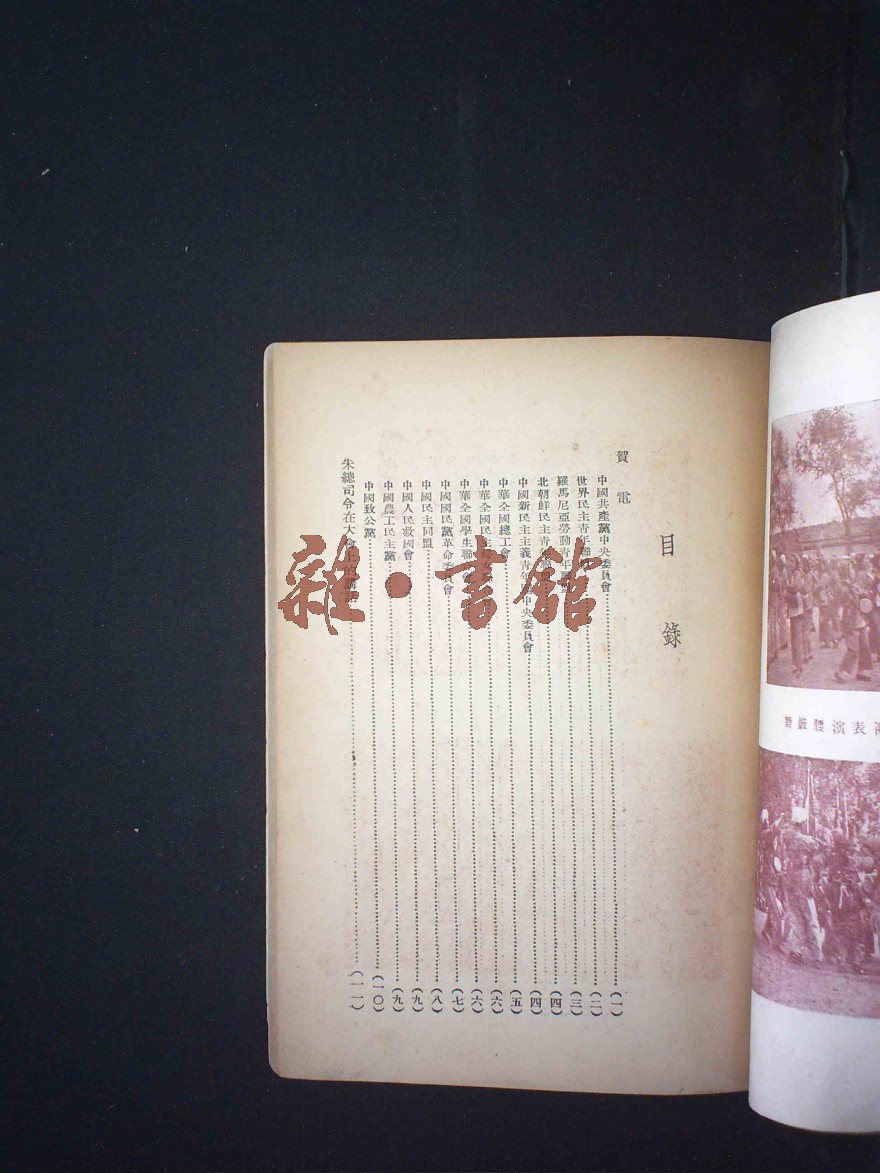 舞鼓腰演表
目錄
賀電
中國共產黨中央委員會……(一)
世界民主青年聯……(二)
羅馬尼亞勞動青年聯盟……(三)
北朝鮮民主青年……(四)
中國新民主主義青年團中央委員會……(四)
中華全國總工會……(五)
中華全國民主婦女……(六)
中華全國學生聯合會……(六)
中國國民黨革命委員會……(七)
中國民主同盟……(八)
中國人民救國會……(九)
中國農工民主黨……(九)
中國致公黨……(一〇)
朱總司令在大會上的講話……(一一)
雜·書館